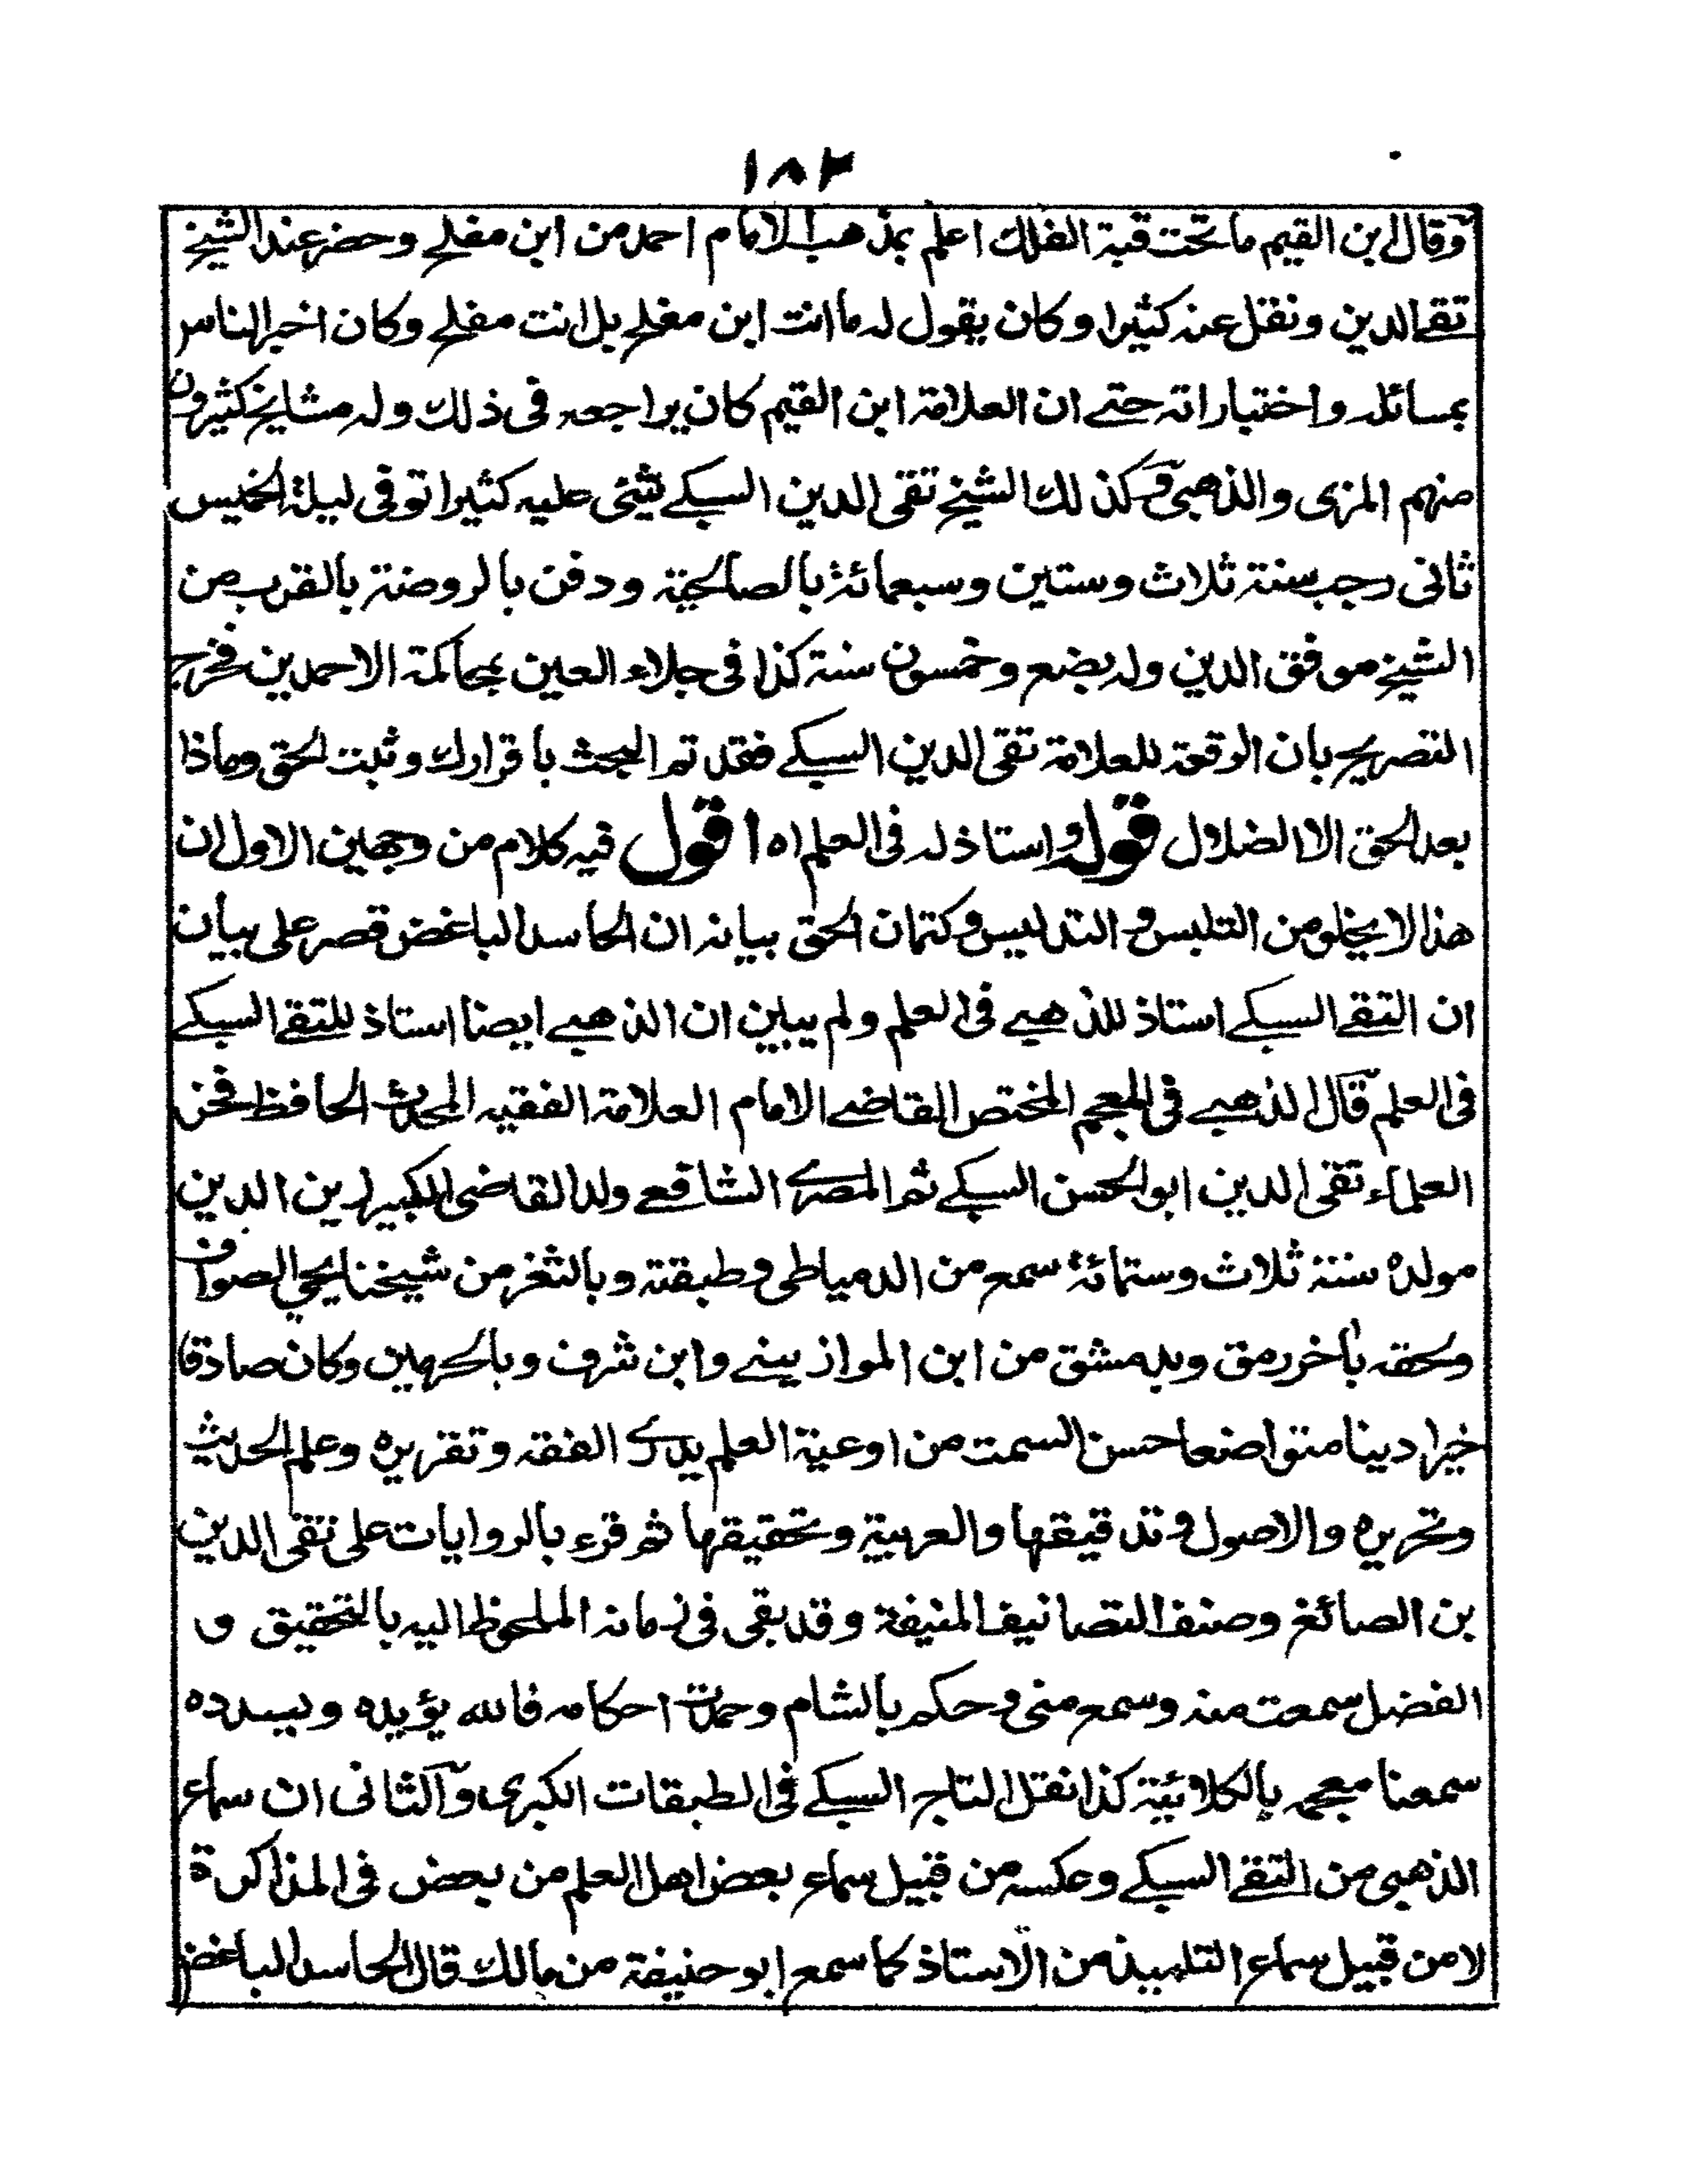 ١٨٢
وقال ابن القيم ما تحت قبة الفلك اعلم بمذهب الامام احمد من ابن مفلح وحضر عند الشيخ
تقے الدين ونقل عنه كثيرا وكان يقول له ما انت ابن مفلح بل انت مفلح وكان اخبر الناس
بمسائله واختياراته حتے ان العلامة ابن القيم كان يراجعه فى ذلك وله مشايخ كثيرون
منهم المزى والذهبى وكذلك الشيخ تقى الدين السبكے يثنى عليه كثيرا توفى ليلة الخميس
ثانى رجب سنة ثلاث وستين وسبعمائة بالصالحية ودفن بالروضة بالقرب من
الشيخ موفق الدين وله بضع وخمسون سنة كذا فى جلاء العين بمحاكمة الاحمدين فخرج
التصريح بان الوقعة للعلامة تقى الدين السبكے فقد تم البحث باقرارك وثبت الحق وماذا
بعد الحق الا الضلال قوله واستاذ له فى العلم اه اقول فيه كلام من وجهين الاول ان
هذا لا يخلو من التلبيس والتدليس وكتمان الحق بيانه ان الحاسد الباغض قصر على بيان
ان التقے السبكے استاذ للذهبے فى العلم ولم يبين ان الذهبے ايضا استاذ للتقے السبكے
فى العلم قال الذهبے فى المعجم المختص القاضے الامام العلامة الفقيه المحدث الحافظ فخر
العلماء تقى الدين ابو الحسن السبكے ثم المصرے الشافعے ولد القاضى الكبير زين الدين
مولده سنة ثلاث وستمائة سمع من الدمياطى وطبقته وبالثغر من شيخنا يحيى الصواف
ولحقه بآخر رمق وبدمشق من ابن الموازينے وابن شرف وبالحرمين وكان صادقا
خيرا دينا متواضعا حسن السمت من اوعية العلم يدرے الفقه وتقريره وعلم الحديث
وتحريره والاصول وتدقيقها والعربية وتحقيقها ثم قرء بالروايات على تقى الدين
بن الصائغ وصنف التصانيف المنيفة وقد بقى فى زمانه الملحوظ اليه بالتحقيق و
الفضل سمعت منه وسمع منى وحكم بالشام وحمدت احكامه فالله يؤيده ويسدده
سمعنا معجمه بالكلائية كذا نقل التاج السبكے فى الطبقات الكبرى والثانى ان سماع
الذهبى من التقے السبكے وعكسه من قبيل سماع بعض اهل العلم من بعض فى المذاكرة
لا من قبيل سماع التلميذ من الاستاذ كما سمع ابو حنيفة من مالك قال الحاسد الباغض